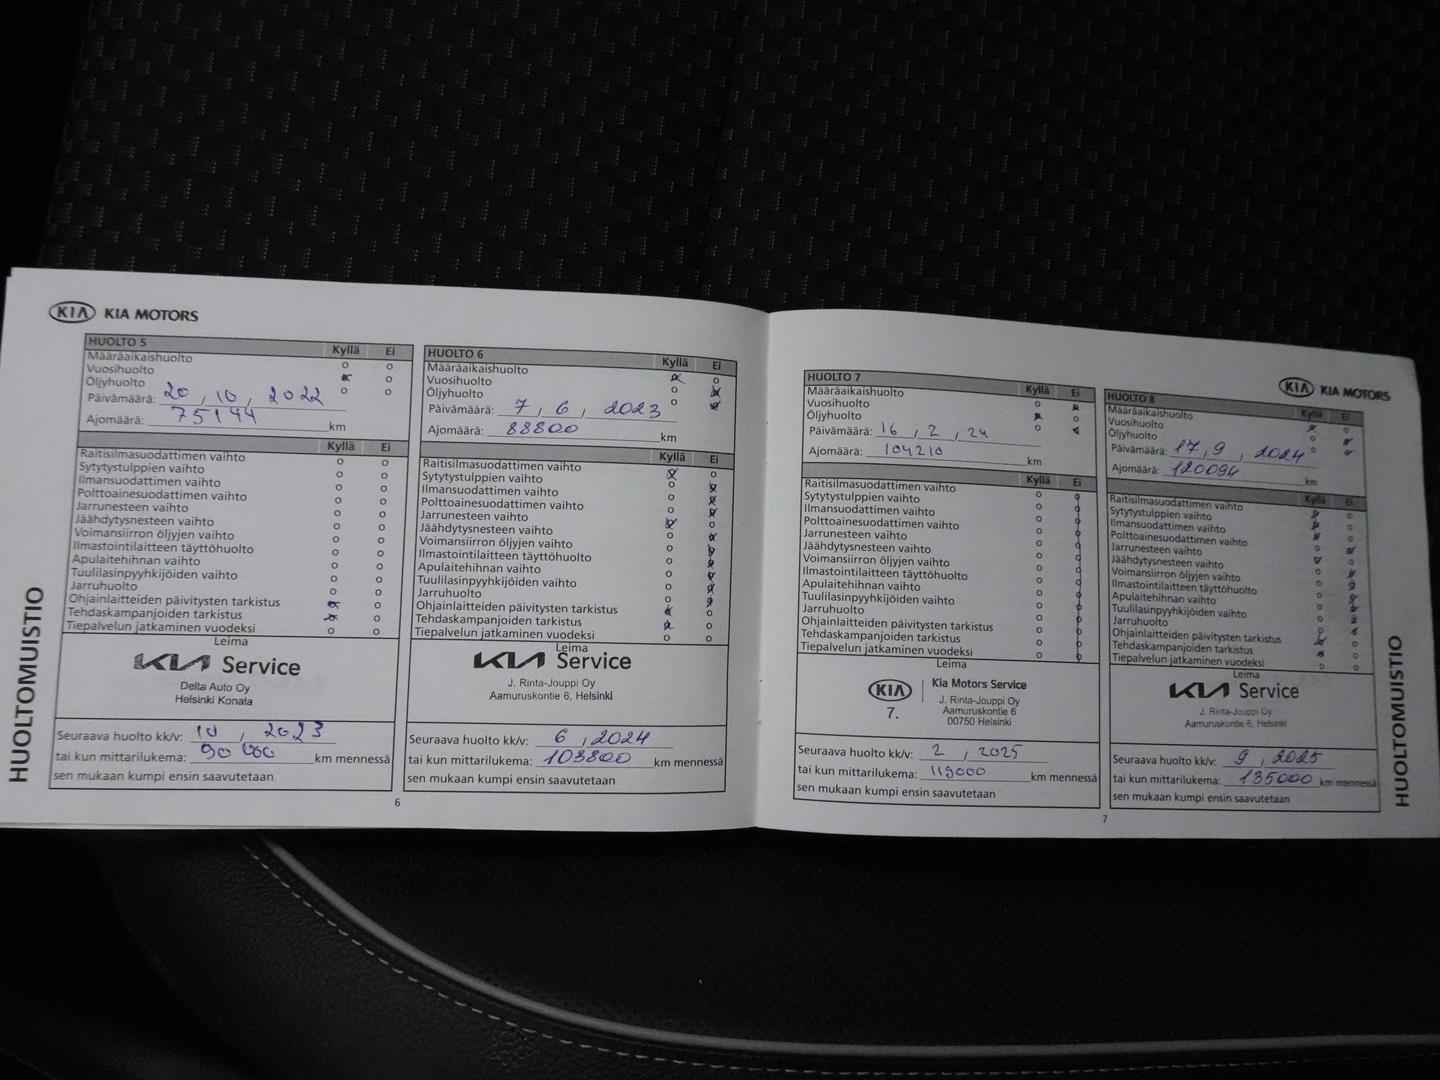 KIA KIA MOTORS
HUOLTO 5 Kyllä Ei
Määräaikaishuolto
Vuosihuolto
Öljyhuolto
Päivämäärä: 20 , 10 , 2022
Ajomäärä: 75144 km
Kyllä Ei
Raitisilmasuodattimen vaihto
Sytytystulppien vaihto
Ilmansuodattimen vaihto
Polttoainesuodattimen vaihto
Jarrunesteen vaihto
Jäähdytysnesteen vaihto
Voimansiirron öljyjen vaihto
Ilmastointilaitteen täyttöhuolto
Apulaitehihnan vaihto
Tuulilasinpyyhkijöiden vaihto
Jarruhuolto
Ohjainlaitteiden päivitysten tarkistus
Tehdaskampanjoiden tarkistus
Tiepalvelun jatkaminen vuodeksi
Leima
KIA Service
Delta Auto Oy
Helsinki Konala
Seuraava huolto kk/v: 10 , 2023
tai kun mittarilukema: 90 000 km mennessä
sen mukaan kumpi ensin saavutetaan
HUOLTO 6 Kyllä Ei
Määräaikaishuolto
Vuosihuolto
Öljyhuolto
Päivämäärä: 7 , 6 , 2023
Ajomäärä: 88800 km
Kyllä Ei
Raitisilmasuodattimen vaihto
Sytytystulppien vaihto
Ilmansuodattimen vaihto
Polttoainesuodattimen vaihto
Jarrunesteen vaihto
Jäähdytysnesteen vaihto
Voimansiirron öljyjen vaihto
Ilmastointilaitteen täyttöhuolto
Apulaitehihnan vaihto
Tuulilasinpyyhkijöiden vaihto
Jarruhuolto
Ohjainlaitteiden päivitysten tarkistus
Tehdaskampanjoiden tarkistus
Tiepalvelun jatkaminen vuodeksi
Leima
KIA Service
J. Rinta-Jouppi Oy
Aamuruskontie 6, Helsinki
Seuraava huolto kk/v: 6 , 2024
tai kun mittarilukema: 103800 km mennessä
sen mukaan kumpi ensin saavutetaan
HUOLTOMUISTIO
6
KIA KIA MOTORS
HUOLTO 7 Kyllä Ei
Määräaikaishuolto
Vuosihuolto
Öljyhuolto
Päivämäärä: 16 , 2 , 24
Ajomäärä: 104210 km
Kyllä Ei
Raitisilmasuodattimen vaihto
Sytytystulppien vaihto
Ilmansuodattimen vaihto
Polttoainesuodattimen vaihto
Jarrunesteen vaihto
Jäähdytysnesteen vaihto
Voimansiirron öljyjen vaihto
Ilmastointilaitteen täyttöhuolto
Apulaitehihnan vaihto
Tuulilasinpyyhkijöiden vaihto
Jarruhuolto
Ohjainlaitteiden päivitysten tarkistus
Tehdaskampanjoiden tarkistus
Tiepalvelun jatkaminen vuodeksi
Leima
KIA
7.
Kia Motors Service
J. Rinta-Jouppi Oy
Aamuruskontie 6
00750 Helsinki
Seuraava huolto kk/v: 2 , 2025
tai kun mittarilukema: 119000 km mennessä
sen mukaan kumpi ensin saavutetaan
HUOLTO 8 Kyllä Ei
Määräaikaishuolto
Vuosihuolto
Öljyhuolto
Päivämäärä: 17 , 9 , 2024
Ajomäärä: 120094 km
Kyllä Ei
Raitisilmasuodattimen vaihto
Sytytystulppien vaihto
Ilmansuodattimen vaihto
Polttoainesuodattimen vaihto
Jarrunesteen vaihto
Jäähdytysnesteen vaihto
Voimansiirron öljyjen vaihto
Ilmastointilaitteen täyttöhuolto
Apulaitehihnan vaihto
Tuulilasinpyyhkijöiden vaihto
Jarruhuolto
Ohjainlaitteiden päivitysten tarkistus
Tehdaskampanjoiden tarkistus
Tiepalvelun jatkaminen vuodeksi
Leima
KIA Service
J. Rinta-Jouppi Oy
Aamuruskontie 6, Helsinki
Seuraava huolto kk/v: 9 , 2025
tai kun mittarilukema: 135000 km mennessä
sen mukaan kumpi ensin saavutetaan
HUOLTOMUISTIO
7